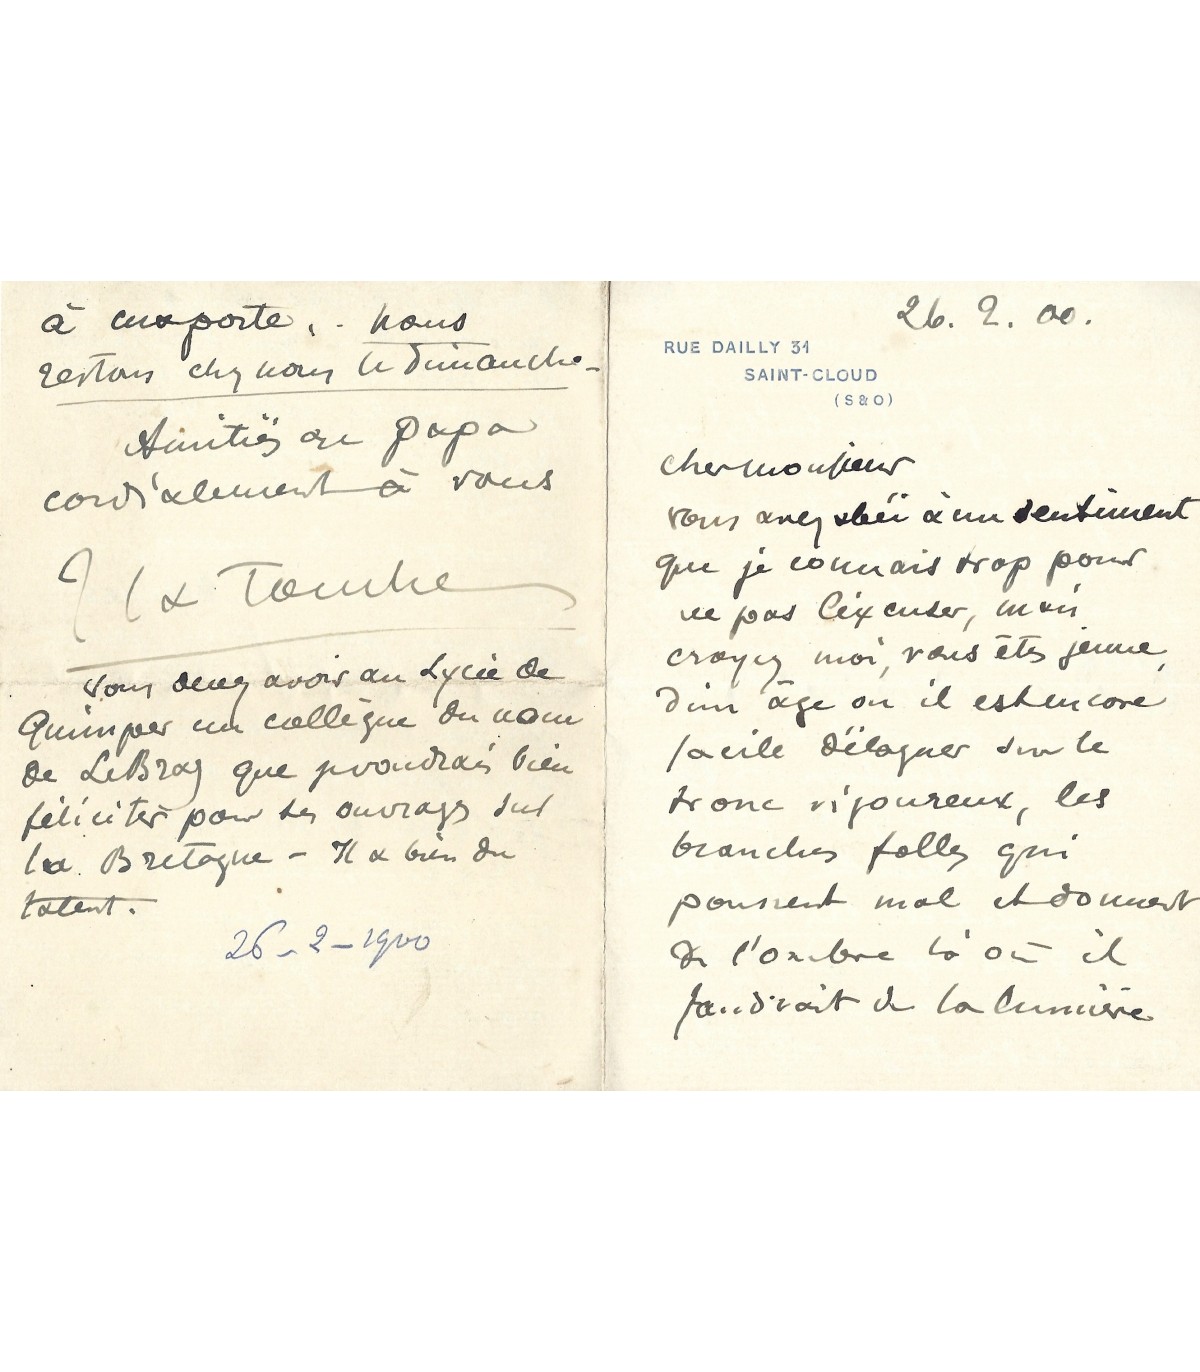 26. 2. 00.
RUE DAILLY 31
SAINT-CLOUD
(S & O)
cher monsieur
vous avez obéi à un sentiment
que je connais trop pour
ne pas l'excuser, mais
croyez moi, vous êtes jeune,
d'un âge où il est encore
facile d'élaguer sur le
tronc vigoureux, les
branches folles qui
poussent mal et donnent
de l'ombre là où il
faudrait de la lumière
à emporte. - Nous
restons chez nous le dimanche -
Amitiés au papa
cordialement à vous
La Touche
Vous devez avoir au Lycée de
Quimper un collègue du nom
de Le Braz que je voudrais bien
féliciter pour ses ouvrages sur
la Bretagne - Il a bien du
talent.
26-2-1900